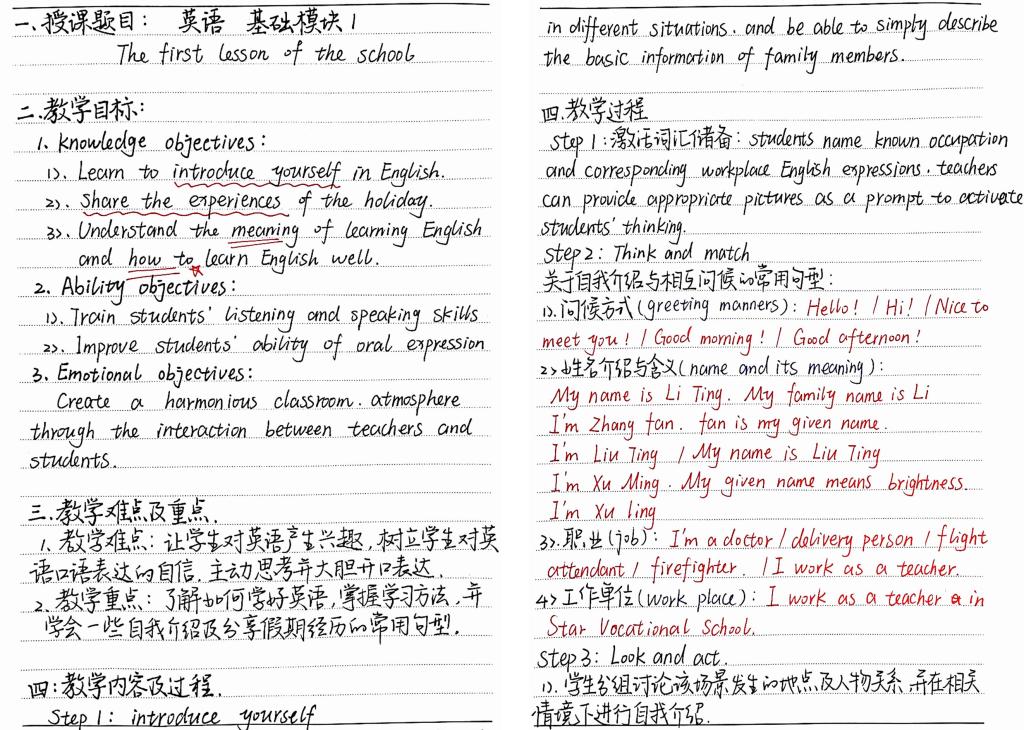 一、授课题目： 英语 基础模块1
The first lesson of the school
二、教学目标：
1. Knowledge objectives:
1>. Learn to introduce yourself in English.
2>. Share the experiences of the holiday.
3>. Understand the meaning of learning English
and how to learn English well.
2. Ability objectives:
1>. Train students' listening and speaking skills
2>. Improve students' ability of oral expression
3. Emotional objectives:
Create a harmonious classroom. atmosphere
through the interaction between teachers and
students.
三.教学难点及重点.
1. 教学难点：让学生对英语产生兴趣，树立学生对英
语口语表达的自信，主动思考并大胆开口表达.
2. 教学重点：了解如何学好英语，掌握学习方法，并
学会一些自我介绍及分享假期经历的常用句型.
四：教学内容及过程.
Step 1: introduce yourself
in different situations. and be able to simply describe
the basic information of family members.
四.教学过程
Step 1: 激活词汇储备：students name known occupation
and corresponding workplace English expressions. teachers
can provide appropriate pictures as a prompt to activate
students' thinking.
Step2: Think and match
关于自我介绍与相互问候的常用句型：
1>.问候方式(greeting manners): Hello! / Hi! / Nice to
meet you! / Good morning! / Good afternoon!
2>姓名介绍与含义(name and its meaning):
My name is Li Ting. My family name is Li
I'm Zhang fan. fan is my given name.
I'm Liu Ting / My name is Liu Ting
I'm Xu Ming. My given name means brightness.
I'm Xu ling
3>.职业(job): I'm a doctor / delivery person / flight
attendant / firefighter. / I work as a teacher.
4>工作单位(work place): I work as a teacher in
Star Vocational School.
Step3: Look and act.
1>.学生分组讨论该场景发生的地点及人物关系，并在相关
情境下进行自我介绍.